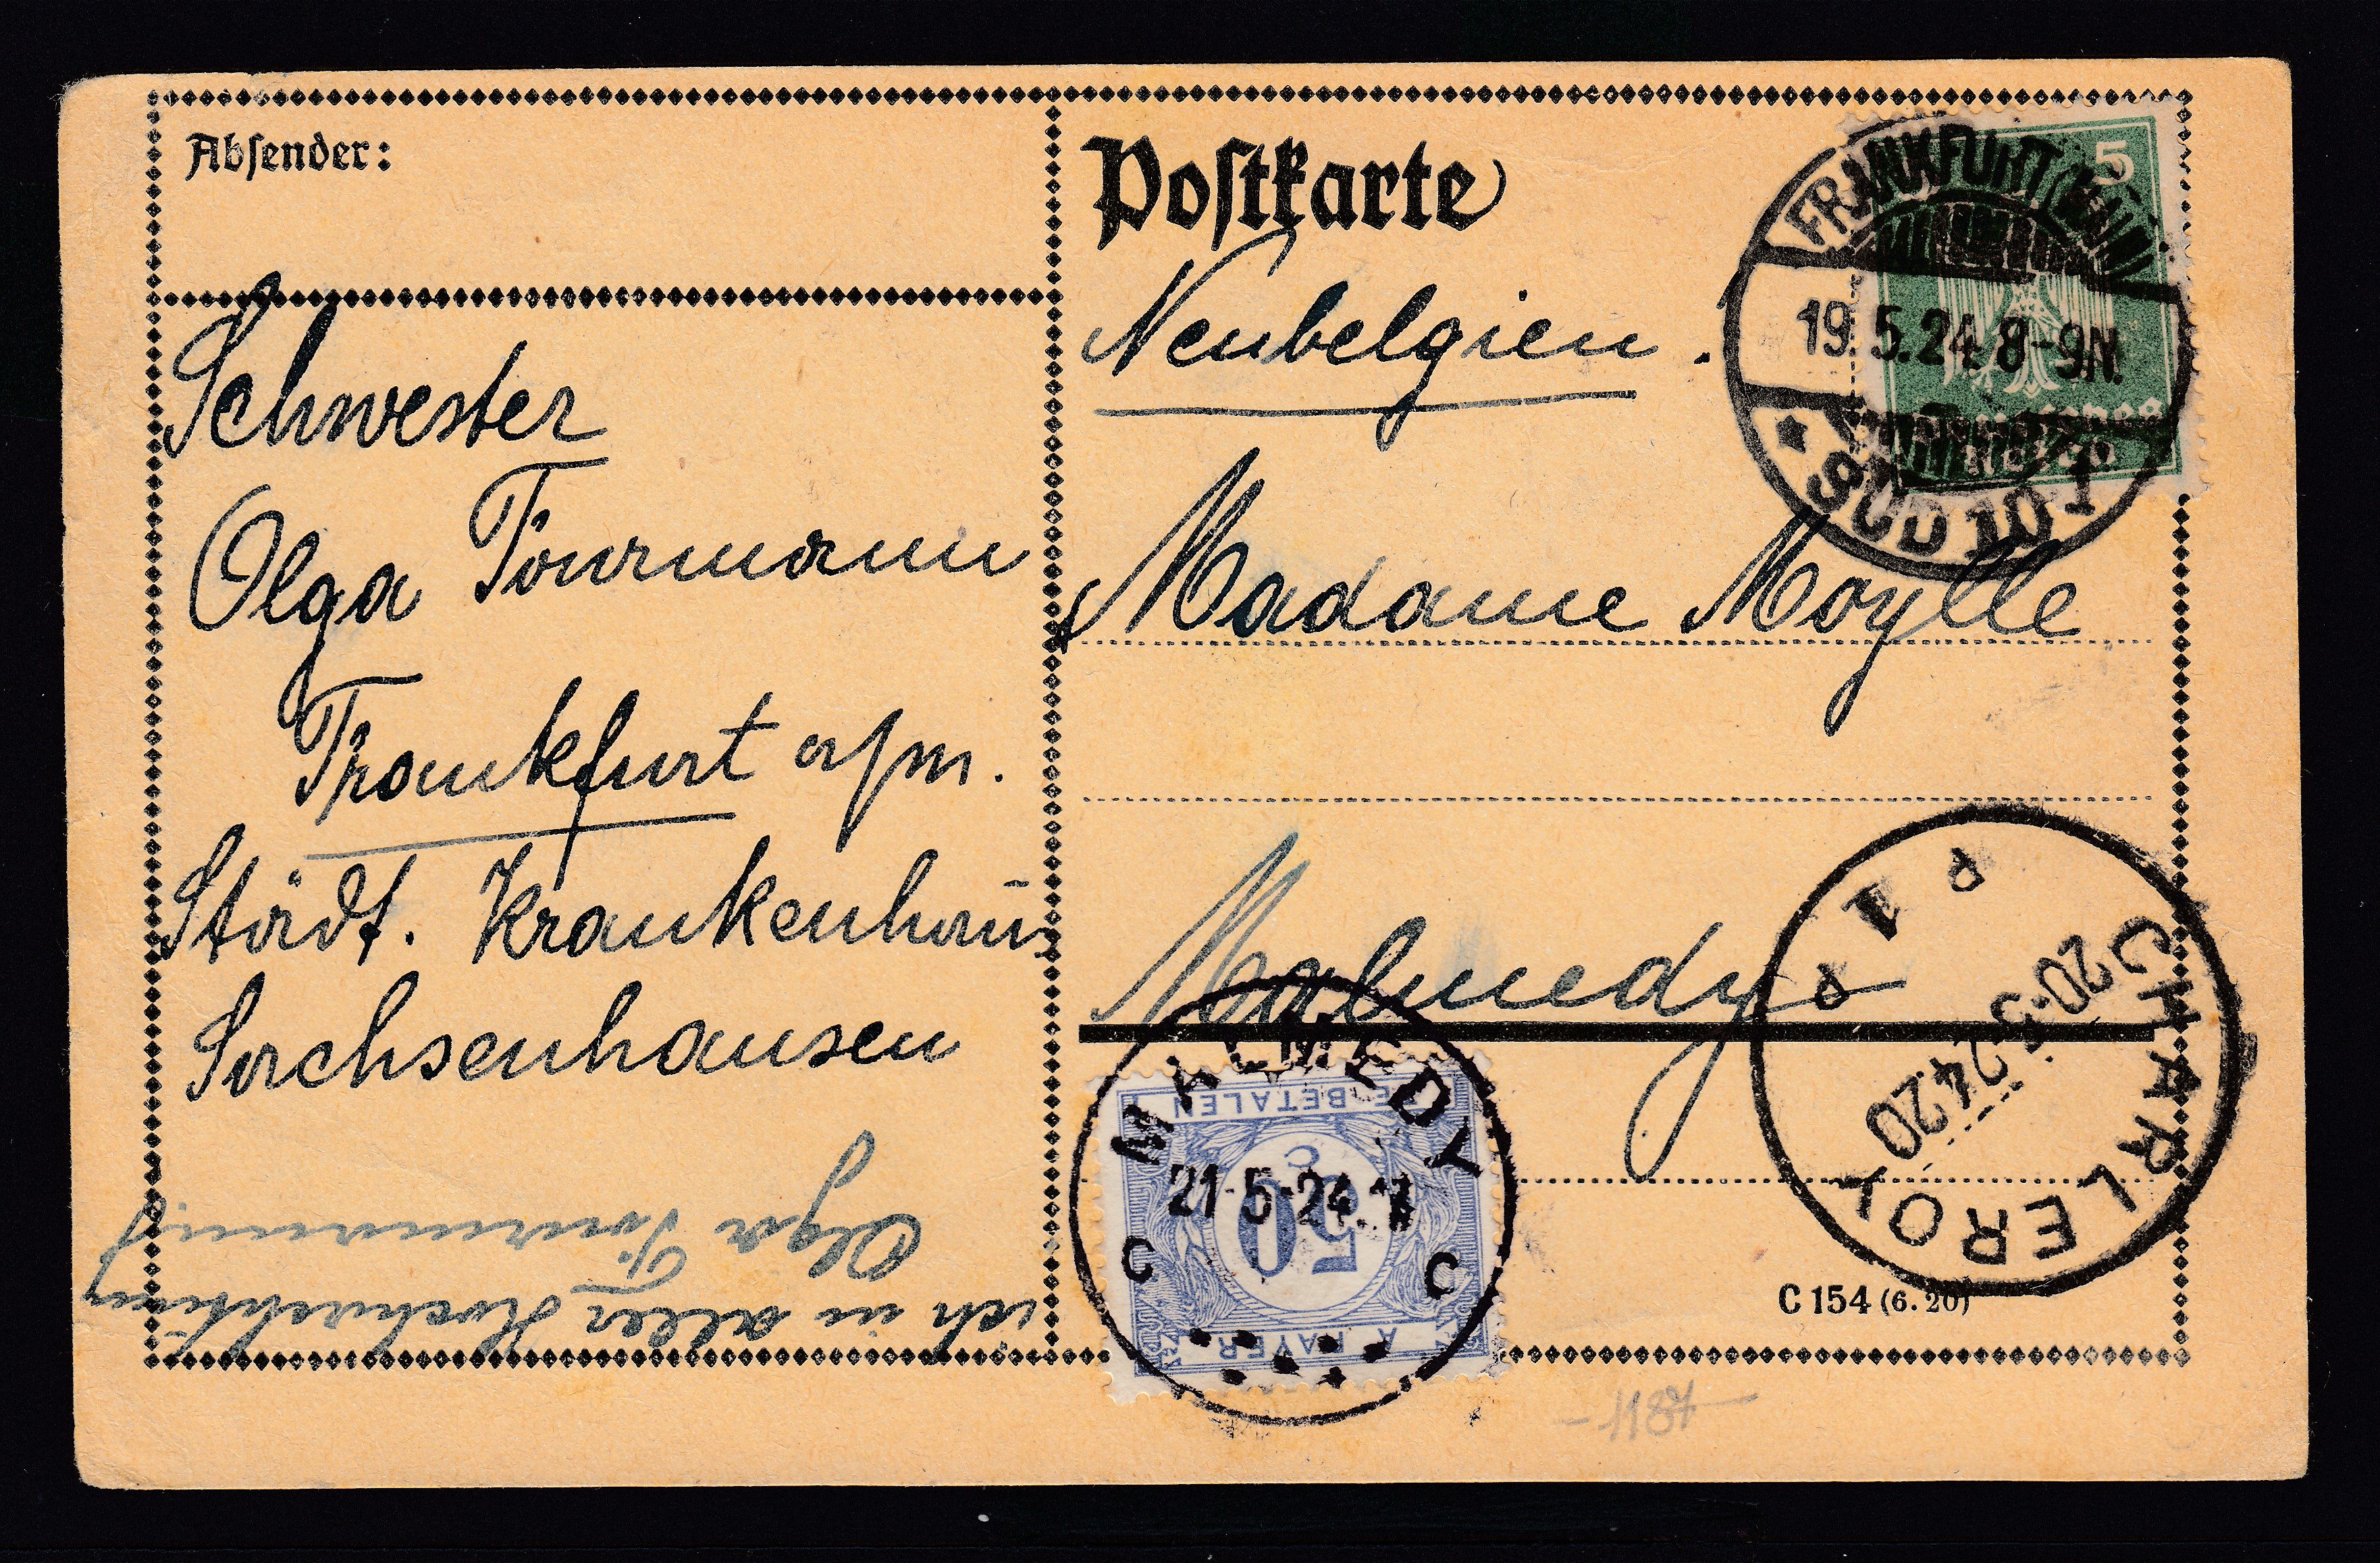 Absender:
Schwester
Olga Tourmann
Frankfurt a/m.
Städt. Krankenhaus
Sachsenhausen
ich in aller Hochachtung
Olga
Postkarte
Neubelgien.
Madame Moylle
Malmedy
FRANKFURT (MAIN)
19.5.24. 8-9N.
* SÜD 10-1
5
CHARLEROY
20-5.24.20
1
MALMEDY
21-5-24.
C C
TE BETALEN
50
C
A PAYER
C 154 (6.20)
-1187-